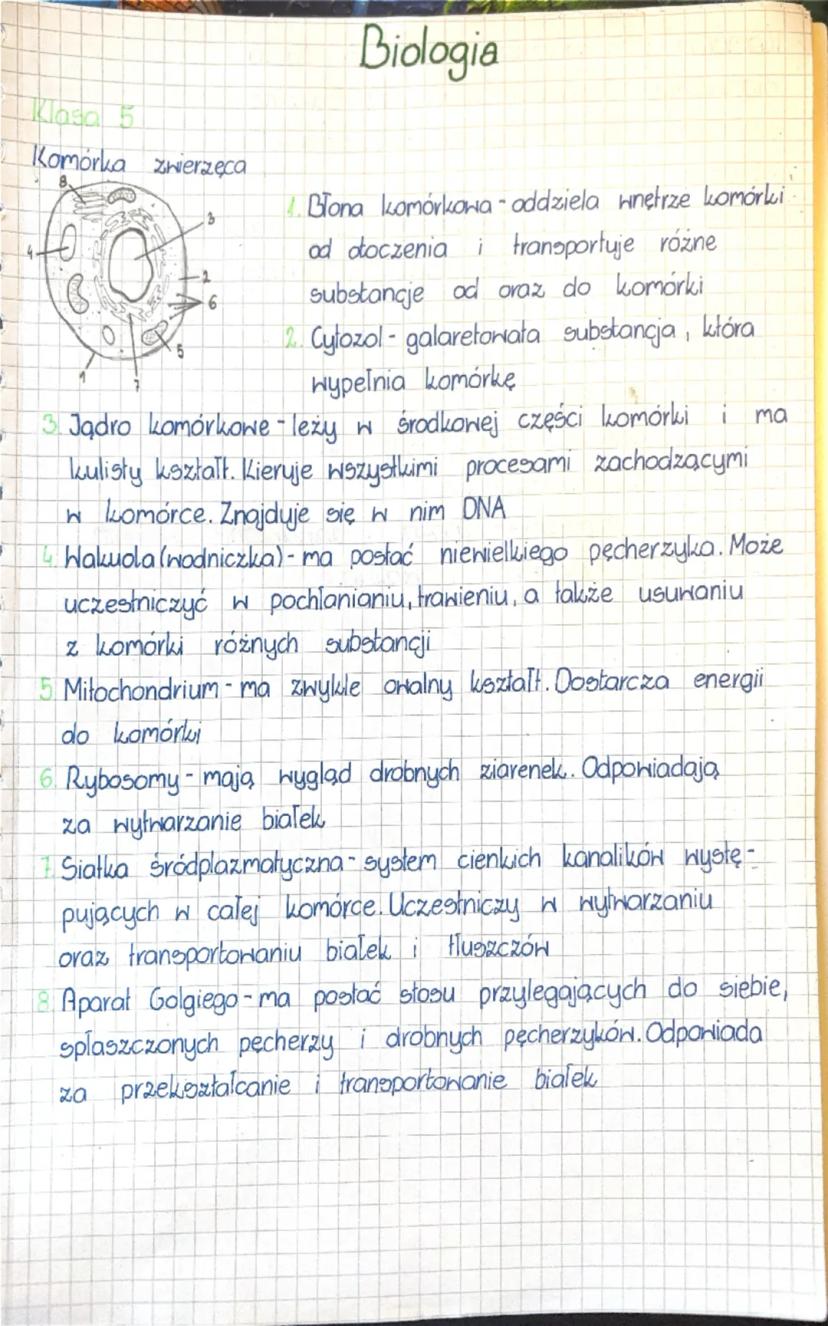 Biologia
Klasa 5
Komórka zwierzęca
8
3
4
2
6
5
1
7
1. Błona komórkowa - oddziela wnętrze komórki
od otoczenia i transportuje różne
substancje od oraz do komórki
2. Cytozol - galaretowata substancja, która
wypełnia komórkę
3. Jądro komórkowe - leży w środkowej części komórki i ma
kulisty kształt. Kieruje wszystkimi procesami zachodzącymi
w komórce. Znajduje się w nim DNA
4. Wakuola (wodniczka) - ma postać niewielkiego pęcherzyka. Może
uczestniczyć w pochłanianiu, trawieniu, a także usuwaniu
z komórki różnych substancji
5. Mitochondrium - ma zwykle owalny kształt. Dostarcza energii
do komórki
6. Rybosomy - mają wygląd drobnych ziarenek. Odpowiadają
za wytwarzanie białek
7. Siatka śródplazmatyczna - system cienkich kanalików wystę-
pujących w całej komórce. Uczestniczy w wytwarzaniu
oraz transportowaniu białek i tłuszczów
8. Aparat Golgiego - ma postać stosu przylegających do siebie,
spłaszczonych pęcherzy i drobnych pęcherzyków. Odpowiada
za przekształcanie i transportowanie białek